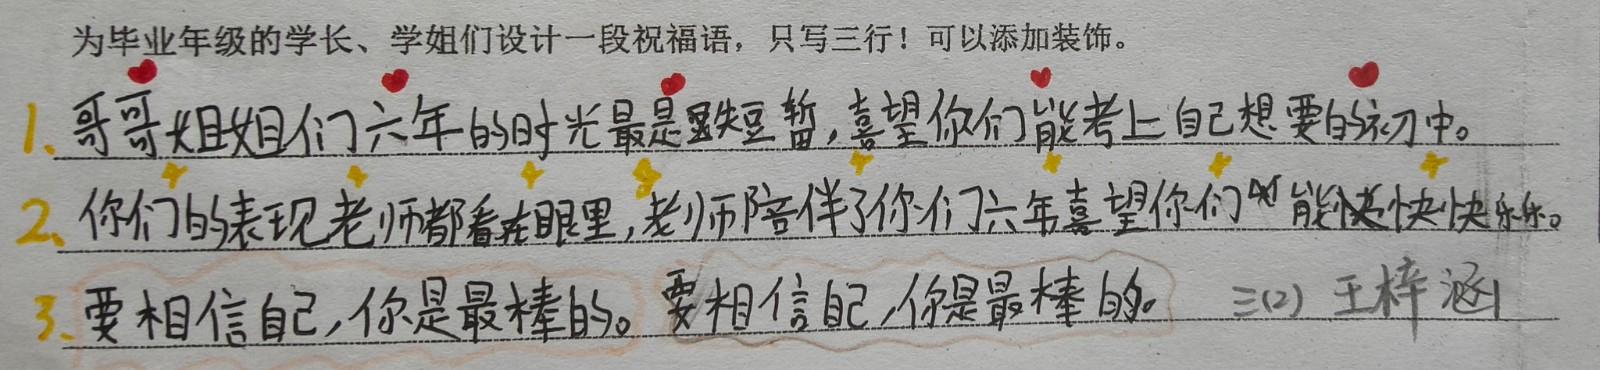 为毕业年级的学长、学姐们设计一段祝福语，只写三行！可以添加装饰。
1、哥哥姐姐们六年的时光最是短暂，喜望你们能考上自己想要的初中。
2、你们的表现老师都看在眼里，老师陪伴了你们六年喜望你们能快快乐乐。
3、要相信自己，你是最棒的。要相信自己，你是最棒的。 三(2) 王梓涵